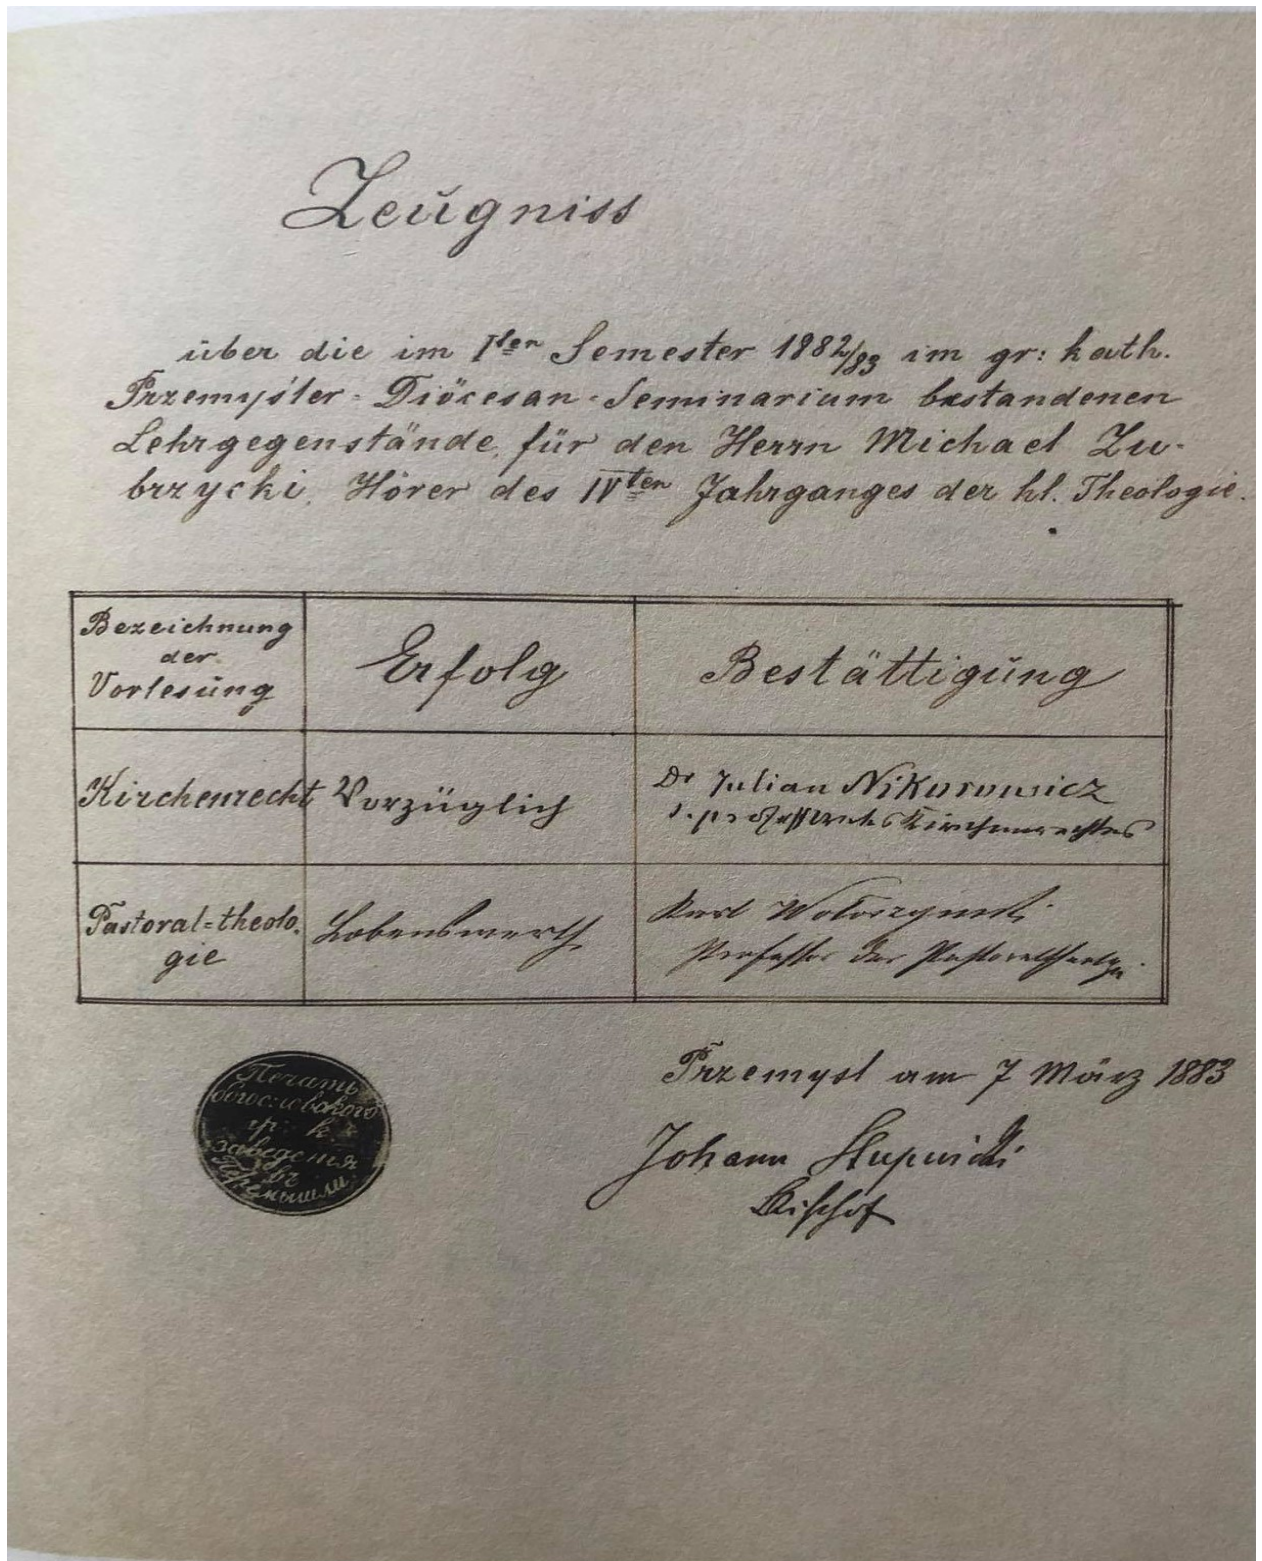 Zeugniss
über die im Iten Semester 1882/83 im gr: kath.
Przemyśler-Diöcesan-Seminarium bestandenen
Lehrgegenstände, für den Herrn Michael Zu-
brzycki, Hörer des IVten Jahrganges der hl. Theologie.
Bezeichnung
der
Vorlesung
Erfolg
Bestättigung
Kirchenrecht
Vorzüglich
Dr Julian Nikorowicz
s. professor des Kirchenrechtes
Pastoral=theolo.
gie
Lobenswerth
Karl Wołoszyński
Professor der Pastoraltheologie
Печать
богословского
гр: к.
заведенія
въ
Перемышли
Przemysl am 7 März 1883
Johann Stupnicki
Bischof